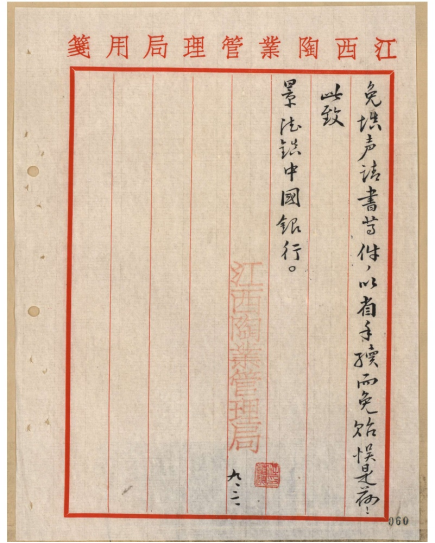 江西陶業管理局用箋
免填声請書等件，以省手續而免貽悞是荷！
此致
景德鎮中國銀行。
江西陶業管理局
九、二
060